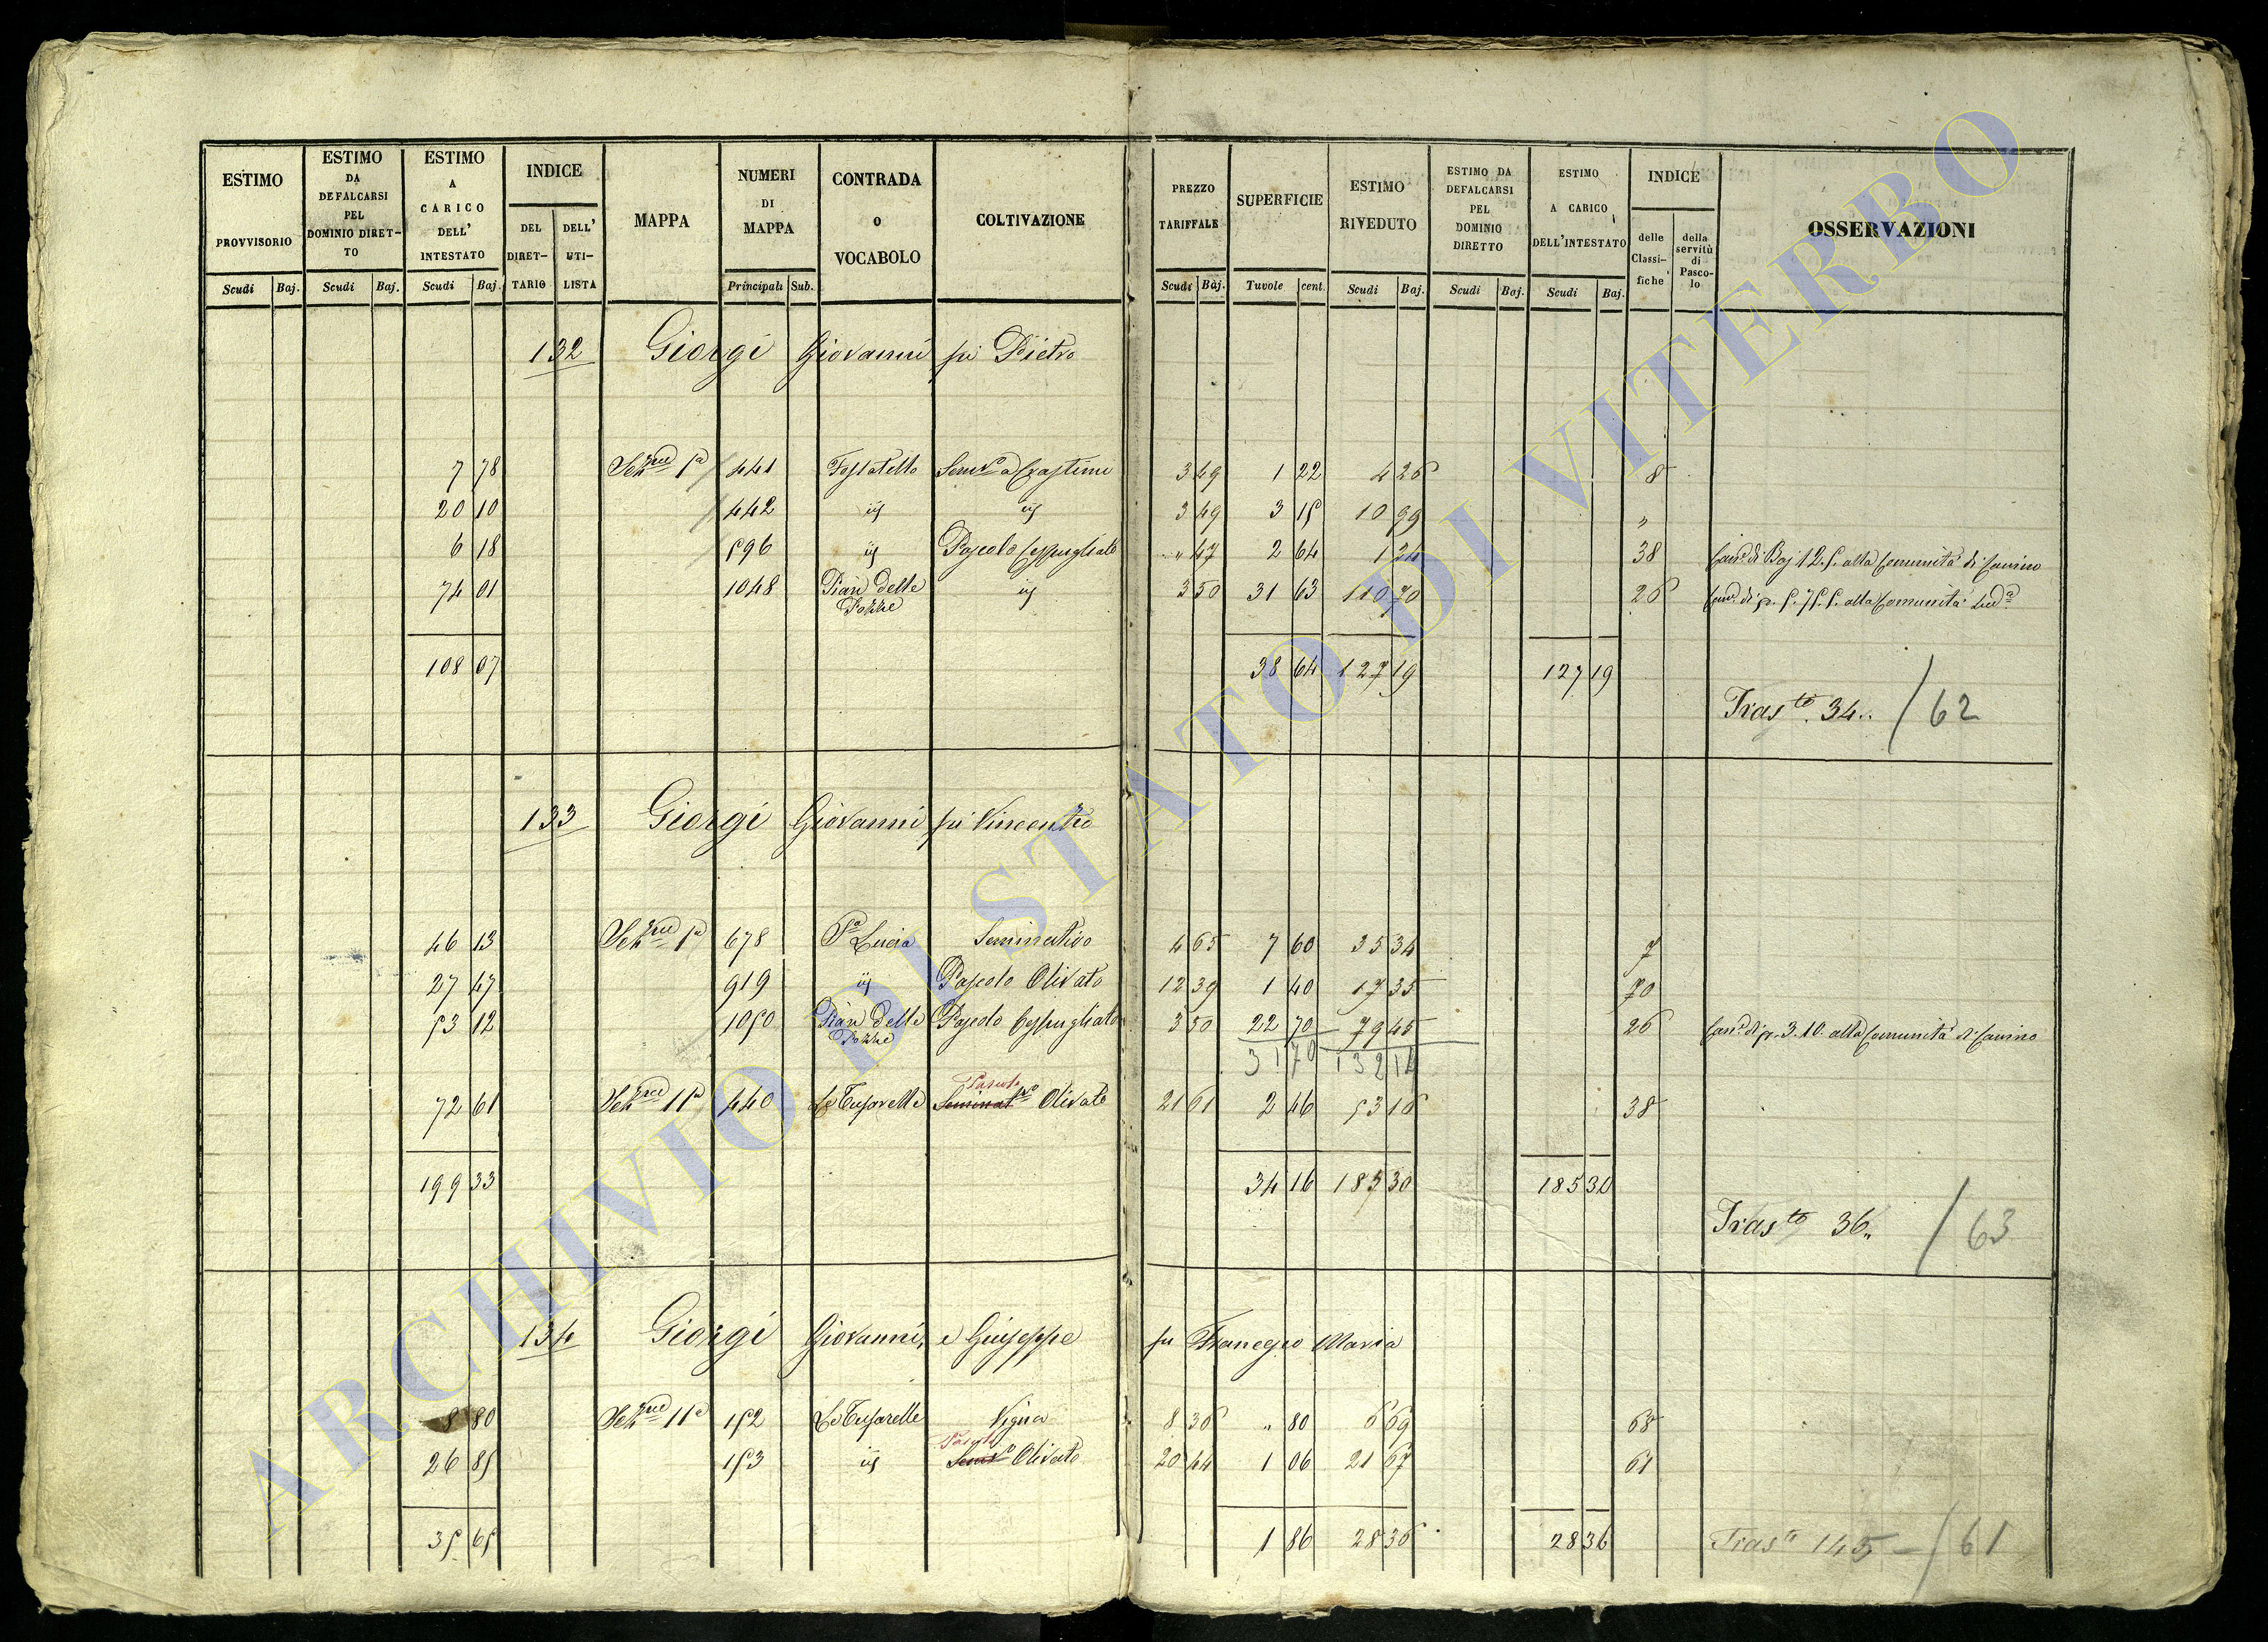 ESTIMO PROVVISORIO | ESTIMO DA DEFALCARSI PEL DOMINIO DIRET-TO | ESTIMO A CARICO DELL' INTESTATO | INDICE DEL DIRET-TARIO | DELL' UTI-LISTA | MAPPA | NUMERI DI MAPPA | CONTRADA O VOCABOLO | COLTIVAZIONE | PREZZO TARIFFALE | SUPERFICIE | ESTIMO RIVEDUTO | ESTIMO DA DEFALCARSI PEL DOMINIO DIRETTO | ESTIMO A CARICO DELL'INTESTATO | INDICE delle Classi-fiche | della servitù di Pasco-lo | OSSERVAZIONI
Scudi Baj. Scudi Baj. Scudi Baj. Principali Sub. Scudi Baj. Tavole cent. Scudi Baj. Scudi Baj. Scudi Baj.
132 Giorgi Giovanni fu Pietro
7 78 1a 441 3 49 1 22 4 26 8
20 10 442 3 49 3 15 10 99 „
6 18 596 Pascolo Cespugliato „ 47 2 64 1 24 38 alla Comunità di Canino
74 01 1048 Pian delle 3 50 31 63 110 70 26 alla Comunità
108 07 38 64 127 19 127 19
Tras.to 34.. / 62
133 Giorgi Giovanni fu Vincenzo
46 13 1a 678 S.a Lucia Seminativo 4 65 7 60 35 34 7
27 47 919 Pascolo Olivato 12 39 1 40 17 35 70
53 12 1050 Pian delle Pascolo Cespugliato 3 50 22 70 79 45 26 3.10 alla Comunità di Canino
31 70 132 14
Pascolo
72 61 11a 440 Olivato 21 61 2 46 53 16 38
199 33 34 16 185 30 185 30
Tras.to 36„ / 63
134 Giorgi Giovanni, e Giuseppe fu Francesco Maria
8 80 11a 152 Vigna 8 36 „ 80 6 69 68
Pascolo
26 85 153 Olivato 20 44 1 06 21 67 61
35 65 1 86 28 36 28 36 Tras.to 145 - / 61
ARCHIVIO DI STATO DI VITERBO